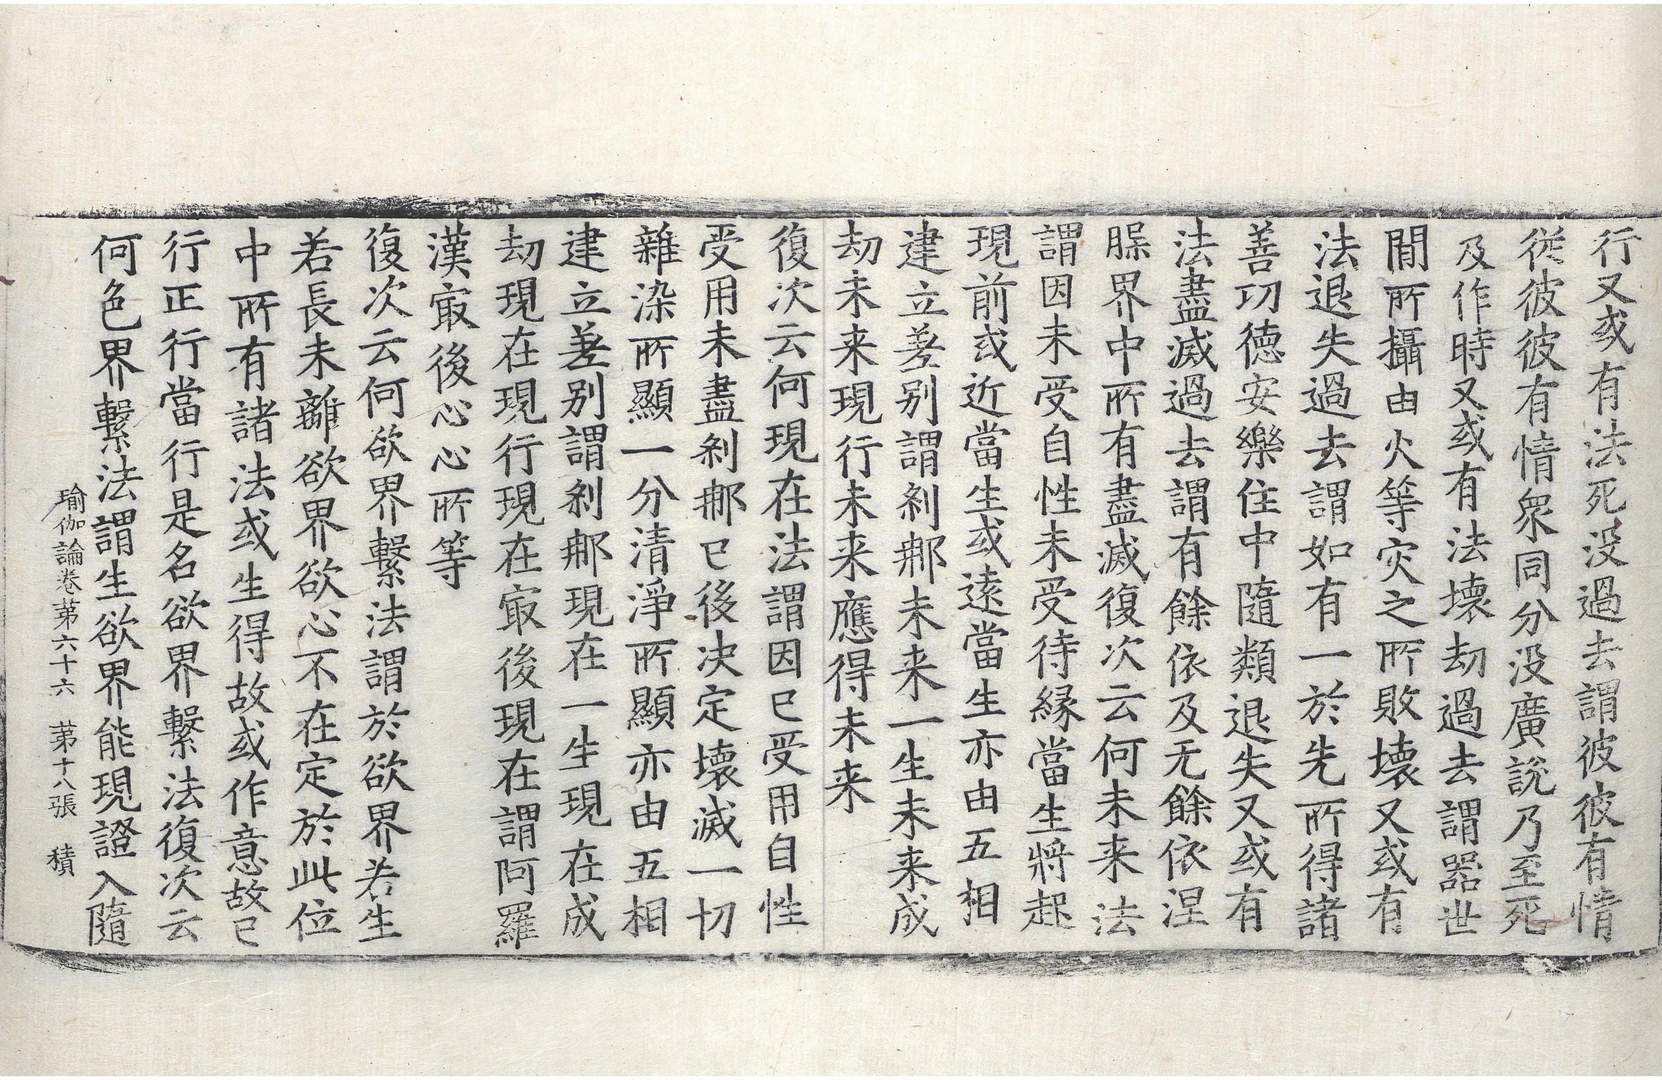 行又或有法死没過去謂彼彼有情
従彼彼有情衆同分没廣説乃至死
及作時又或有法壞劫過去謂器世
間所攝由火等灾之所敗壞又或有
法退失過去謂如有一於先所得諸
善功德安樂住中隨類退失又或有
法盡滅過去謂有餘依及无餘依涅
䐗界中所有盡滅復次云何未来法
謂因未受自性未受待縁當生將起
現前或近當生或逺當生亦由五相
建立差别謂刹那未来一生未来成
劫未来現行未来應得未来
復次云何現在法謂因已受用自性
受用未盡刹那已後决定壞滅一切
雜染所顯一分清淨所顯亦由五相
建立差别謂刹那現在一生現在成
劫現在現行現在㝡後現在謂阿羅
漢㝡後心心所等
復次云何欲界繫法謂於欲界若生
若長未離欲界欲心不在定於此位
中所有諸法或生得故或作意故已
行正行當行是名欲界繫法復次云
何色界繫法謂生欲界能現證入隨
瑜伽論卷苐六十六　苐十八張　積